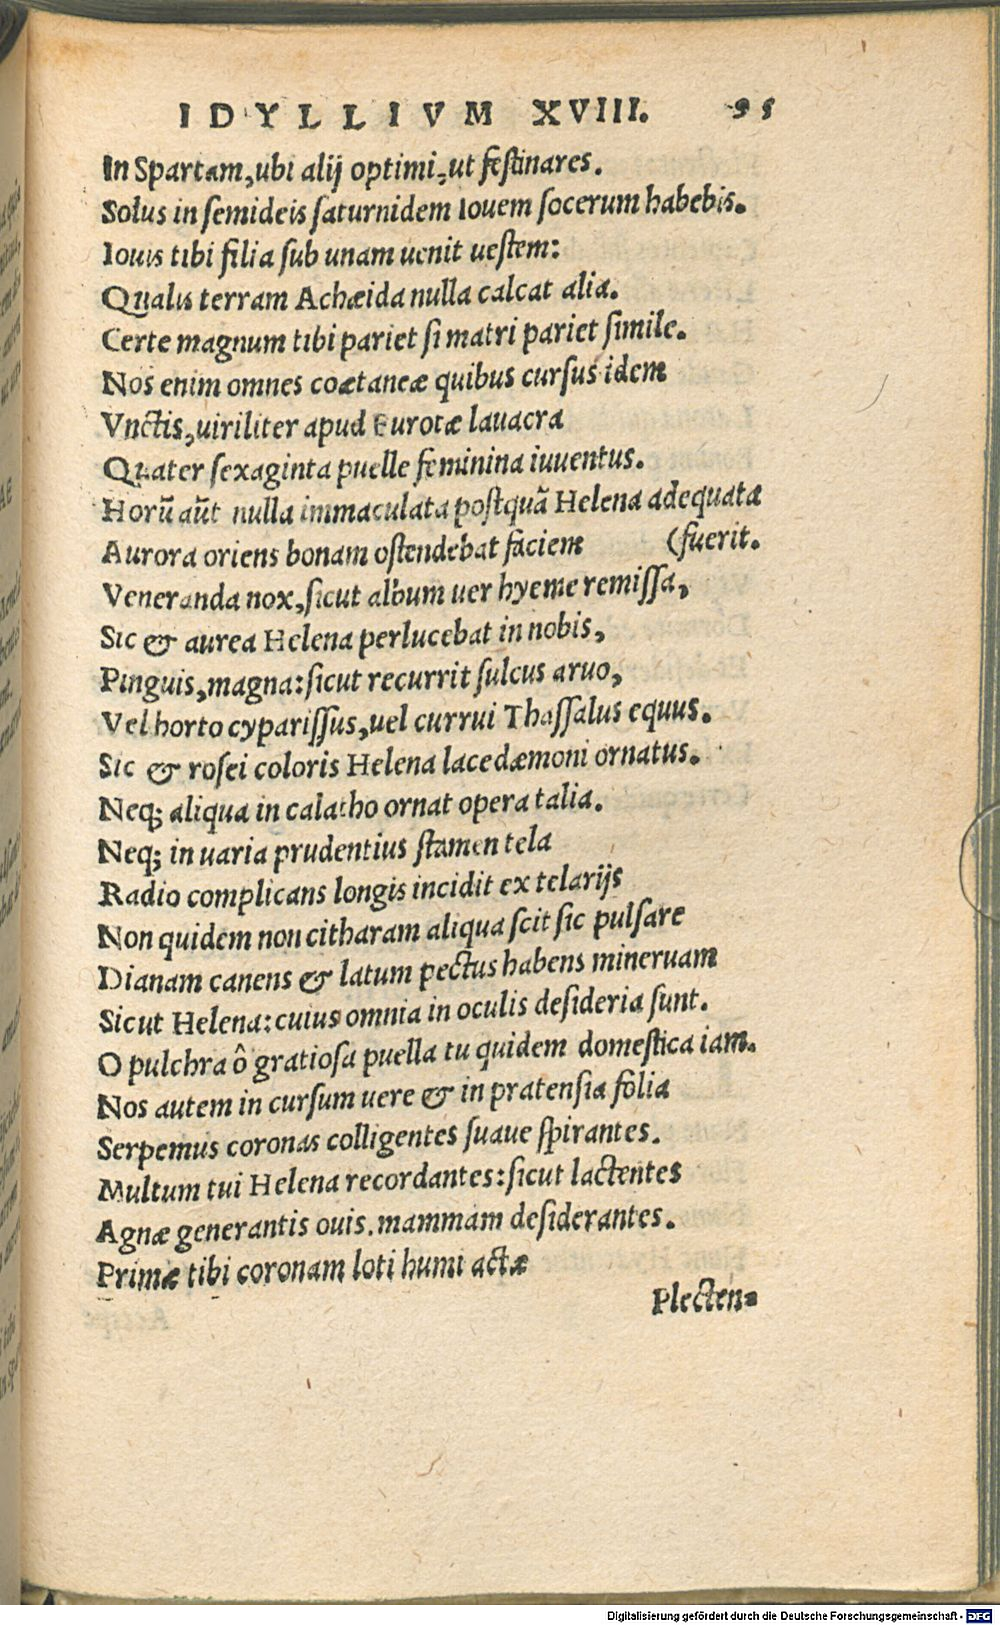 IDYLLIVM XVIII. 95
In Spartam, ubi alij optimi, ut festinares.
Solus in semideis saturnidem Iouem socerum habebis.
Iouis tibi filia sub unam uenit uestem:
Qualis terram Achæida nulla calcat alia.
Certe magnum tibi pariet si matri pariet simile.
Nos enim omnes coætaneæ quibus cursus idem
Vnctis, uiriliter apud Eurotæ lauacra
Quater sexaginta puelle feminina iuuentus.
Horũ aũt nulla immaculata postquã Helena adequata
Aurora oriens bonam ostendebat faciem (fuerit.
Veneranda nox, sicut album uer hyeme remissa,
Sic & aurea Helena perlucebat in nobis,
Pinguis, magna: sicut recurrit sulcus aruo,
Vel horto cyparissus, uel currui Thassalus equus.
Sic & rosei coloris Helena lacedæmoni ornatus.
Neq; aliqua in calatho ornat opera talia.
Neq; in uaria prudentius stamen tela
Radio complicans longis incidit ex telarijs
Non quidem non citharam aliqua scit sic pulsare
Dianam canens & latum pectus habens mineruam
Sicut Helena: cuius omnia in oculis desideria sunt.
O pulchra ô gratiosa puella tu quidem domestica iam.
Nos autem in cursum uere & in pratensia folia
Serpemus coronas colligentes suaue spirantes.
Multum tui Helena recordantes: sicut lactentes
Agnæ generantis ouis. mammam desiderantes.
Primæ tibi coronam loti humi actæ
Plecten=
Digitalisierung gefördert durch die Deutsche Forschungsgemeinschaft - DFG